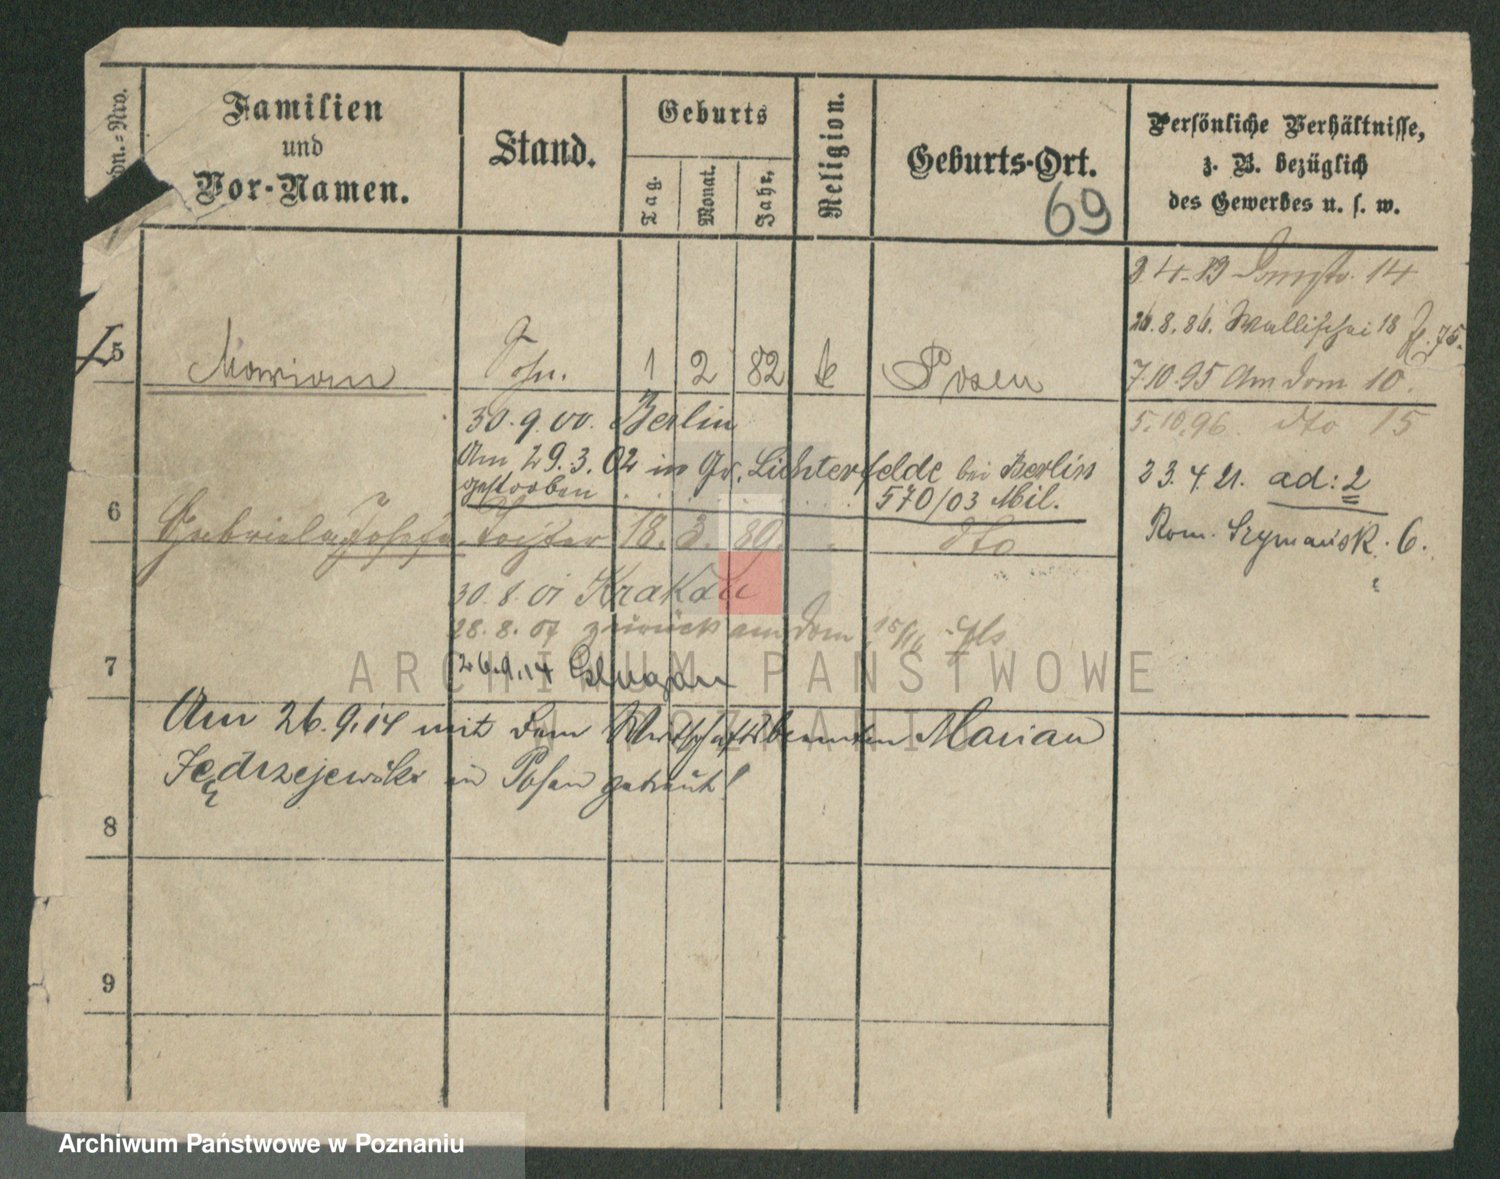 Ordn.-Nro.
Familien
und
Vor-Namen.
Stand.
Geburts
Tag.
Monat.
Jahr.
Religion.
Geburts-Ort.
69
Persönliche Verhältnisse,
z. B. bezüglich
des Gewerbes u. s. w.
2.4.83 Domstr. 14
26.8.86. Wallischei 18
7.10.95 Am Dom 10.
5.10.96. dto 15
23.4.21. ad: 2
Rom. Szymańsk. 6.
5 Marian Sohn. 1 2 82 k Posen
30.9.00. Berlin
Am 29.3.02 in Gr. Lichterfelde bei Berlin
gestorben 570/03 Mil.
6 Gabriela Josefa Tochter 18. 3. 89. dto
30.8.01 Krakau
28.8.07 zurück am Dom
26.9.14
7
Am 26.9.14 mit dem Wirtschaftsbeamten Marian
Jędrzejewski in Posen getraut!
8
9
ARCHIWUM PAŃSTWOWE
W POZNANIU
Archiwum Państwowe w Poznaniu